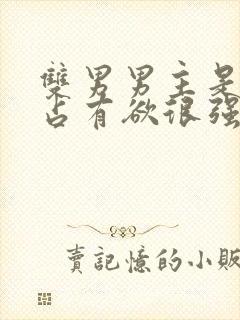 雙男男主是
占有欲很强
賣記憶的小販